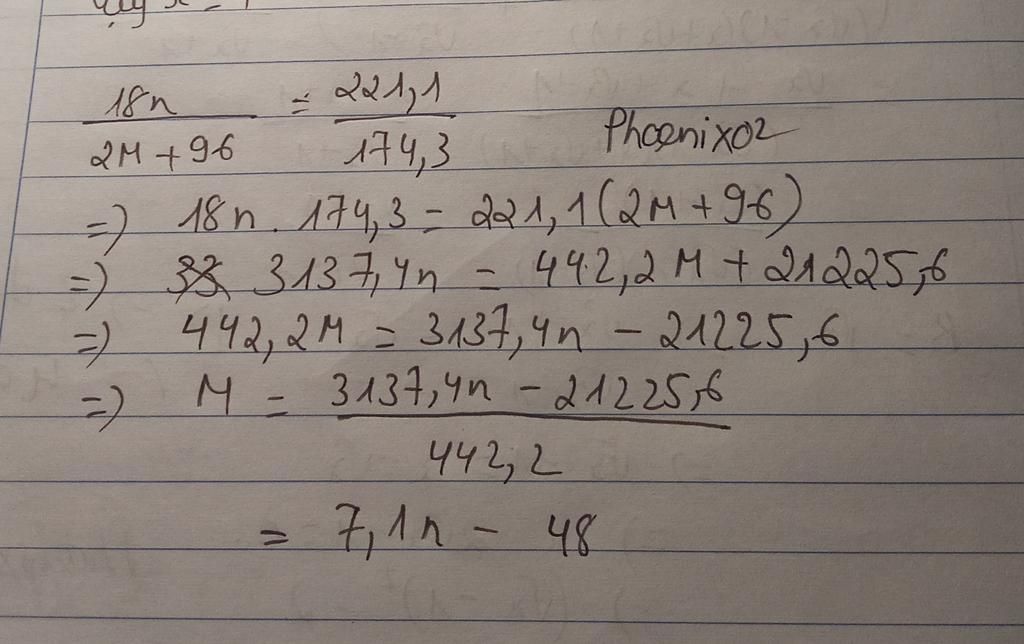 18n / 2M + 96 = 221,1 / 174,3 Phoenix02
=) 18n . 174,3 = 221,1(2M + 96)
=) 3137,4n = 442,2M + 21225,6
=) 442,2M = 3137,4n - 21225,6
=) M = 3137,4n - 21225,6 / 442,2
= 7,1n - 48